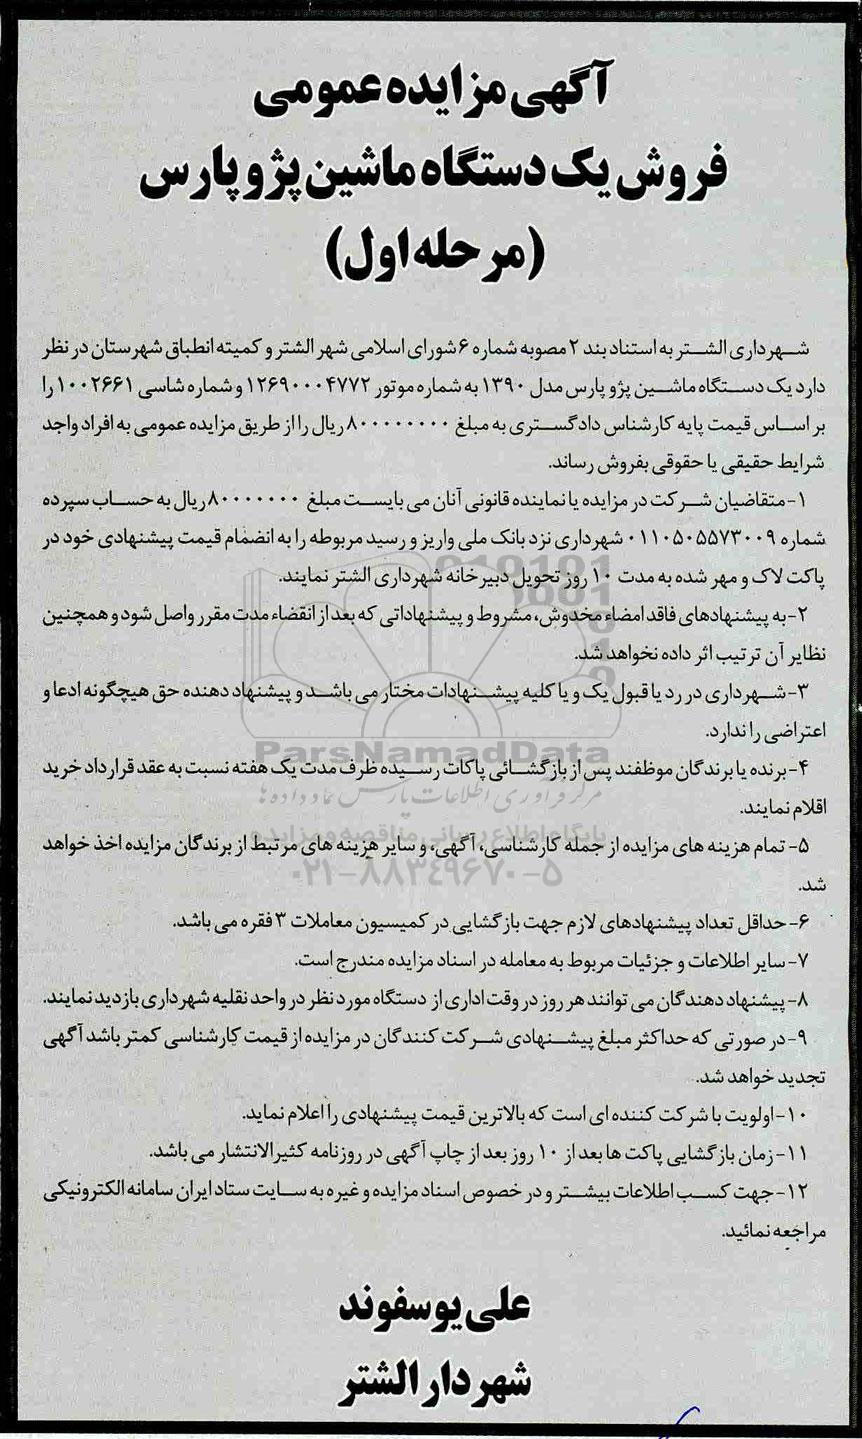 آگهی مزایده عمومی
فروش یک دستگاه ماشین پژو پارس
(مرحله اول)
شهرداری الشتر به استناد بند ۲ مصوبه شماره ۶ شورای اسلامی شهر الشتر و کمیته انطباق شهرستان در نظر
دارد یک دستگاه ماشین پژو پارس مدل ۱۳۹۰ به شماره موتور ۱۲۶۹۰۰۰۴۷۷۲ و شماره شاسی ۱۰۰۲۶۶۱ را
بر اساس قیمت پایه کارشناس دادگستری به مبلغ ۸۰۰۰۰۰۰۰۰ ریال را از طریق مزایده عمومی به افراد واجد
شرایط حقیقی یا حقوقی بفروش رساند.
۱- متقاضیان شرکت در مزایده یا نماینده قانونی آنان می بایست مبلغ ۸۰۰۰۰۰۰۰ ریال به حساب سپرده
شماره ۰۱۱۰۵۰۵۵۷۳۰۰۹ شهرداری نزد بانک ملی واریز و رسید مربوطه را به انضمام قیمت پیشنهادی خود در
پاکت لاک و مهر شده به مدت ۱۰ روز تحویل دبیرخانه شهرداری الشتر نمایند.
۲- به پیشنهادهای فاقد امضاء مخدوش، مشروط و پیشنهاداتی که بعد از انقضاء مدت مقرر واصل شود و همچنین
نظایر آن ترتیب اثر داده نخواهد شد.
۳- شهرداری در رد یا قبول یک و یا کلیه پیشنهادات مختار می باشد و پیشنهاد دهنده حق هیچگونه ادعا و
اعتراضی را ندارد.
ParsNamadData
۴- برنده یا برندگان موظفند پس از بازگشائی پاکات رسیده ظرف مدت یک هفته نسبت به عقد قرارداد خرید
مرکز فرآوری اطلاعات پارس نماد داده ها
اقلام نمایند.
پایگاه اطلاع رسانی مناقصه و مزایده
۵- تمام هزینه های مزایده از جمله کارشناسی، آگهی، و سایر هزینه های مرتبط از برندگان مزایده اخذ خواهد
شد.
۰۲۱-۸۸۳۴۹۶۷۰-۵
۶- حداقل تعداد پیشنهادهای لازم جهت بازگشایی در کمیسیون معاملات ۳ فقره می باشد.
۷- سایر اطلاعات و جزئیات مربوط به معامله در اسناد مزایده مندرج است.
۸- پیشنهاد دهندگان می توانند هر روز در وقت اداری از دستگاه مورد نظر در واحد نقلیه شهرداری بازدید نمایند.
۹- در صورتی که حداکثر مبلغ پیشنهادی شرکت کنندگان در مزایده از قیمت کارشناسی کمتر باشد آگهی
تجدید خواهد شد.
۱۰- اولویت با شرکت کننده ای است که بالاترین قیمت پیشنهادی را اعلام نماید.
۱۱- زمان بازگشایی پاکت ها بعد از ۱۰ روز بعد از چاپ آگهی در روزنامه کثیرالانتشار می باشد.
۱۲- جهت کسب اطلاعات بیشتر و در خصوص اسناد مزایده و غیره به سایت ستاد ایران سامانه الکترونیکی
مراجعه نمائید.
علی یوسفوند
شهردار الشتر